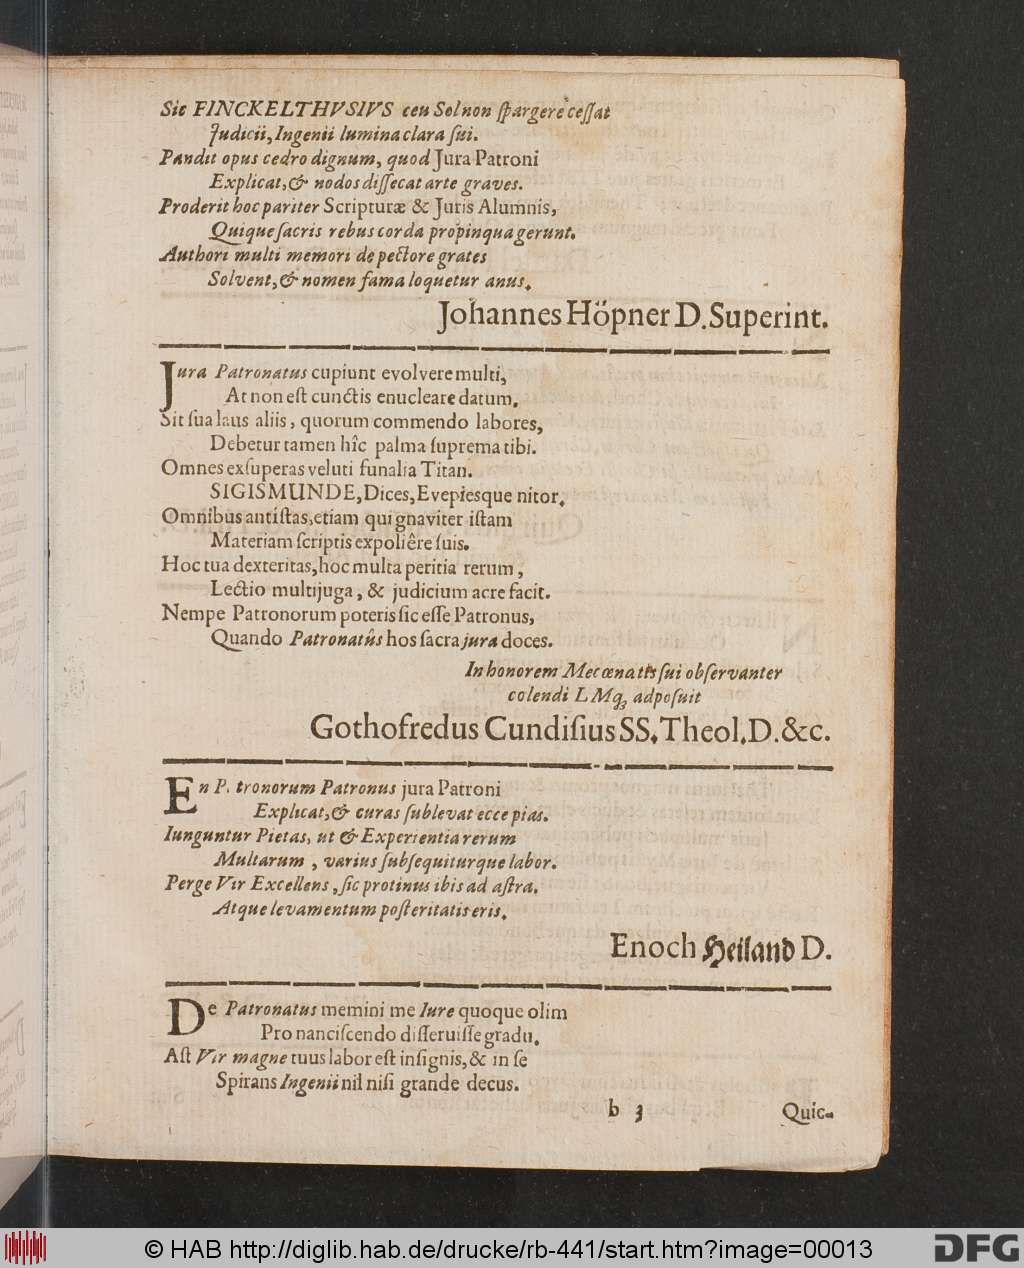 Sic FINCKELTHVSIVS ceu Sol non ſpargere ceſſat
Judicii, Ingenii lumina clara ſui.
Pandit opus cedro dignum, quod Jura Patroni
Explicat, & nodos diſſecat arte graves.
Proderit hoc pariter Scripturæ & Juris Alumnis,
Quique ſacris rebus corda propinqua gerunt.
Authori multi memori de pectore grates
Solvent, & nomen fama loquetur anus.
Johannes Höpner D. Superint.
Jura Patronatus cupiunt evolvere multi,
At non eſt cunctis enucleare datum.
Sit ſua laus aliis, quorum commendo labores,
Debetur tamen hîc palma ſuprema tibi.
Omnes exſuperas veluti funalia Titan.
SIGISMUNDE, Dices, Evepiesque nitor.
Omnibus antiſtas, etiam qui gnaviter iſtam
Materiam ſcriptis expoliêre ſuis.
Hoc tua dexteritas, hoc multa peritia rerum,
Lectio multijuga, & judicium acre facit.
Nempe Patronorum poteris ſic eſſe Patronus,
Quando Patronatûs hos ſacra jura doces.
In honorem Mecœnatis ſui obſervanter
colendi L Mq; adpoſuit
Gothofredus Cundiſius SS. Theol. D. &c.
En P. tronorum Patronus jura Patroni
Explicat, & curas ſublevat ecce pias.
Iunguntur Pietas, ut & Experientia rerum
Multarum, varius ſubſequiturque labor.
Perge Vir Excellens, ſic protinus ibis ad aſtra.
Atque levamentum poſteritatis eris.
Enoch Heiland D.
De Patronatus memini me Iure quoque olim
Pro nanciſcendo diſſeruiſſe gradu.
Aſt Vir magne tuus labor eſt inſignis, & in ſe
Spirans Ingenii nil niſi grande decus.
b 3 Quic-
© HAB http://diglib.hab.de/drucke/rb-441/start.htm?image=00013 DFG